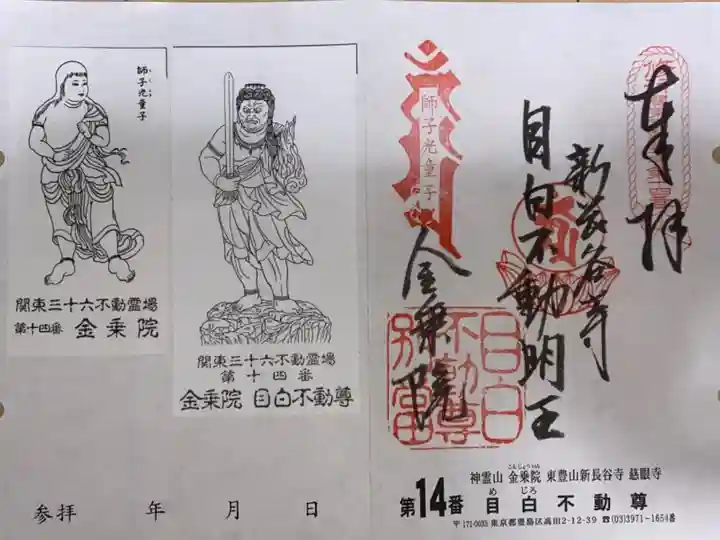 師子光童子
関東三十六不動霊場
第十四番 金乗院
関東三十六不動霊場
第十四番
金乗院 目白不動尊
参拝 年 月 日
奉拝
新長谷寺
目白不動明王
師子光童子
金乗院
目白
不動尊
別當
神霊山 金乗院 東豊山新長谷寺 慈眼寺
こんじょういん
第14番 目白不動尊
めじろ
〒171-0033 東京都豊島区高田2-12-39 ☎(03)3971-1654番